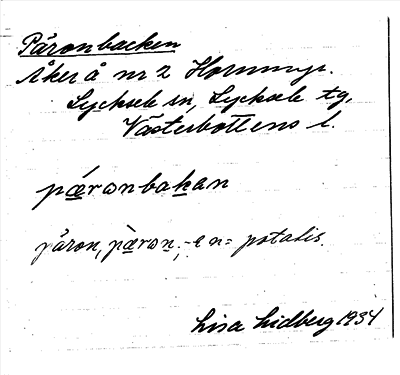 Påronbacken
Åker å nr 2 Hornmyr.
Lycksele sn, Lycksele tg,
Västerbottens l.
pǽronbakan
påron, pæ̀ron, -en = potatis.
Lisa Lidberg 1934